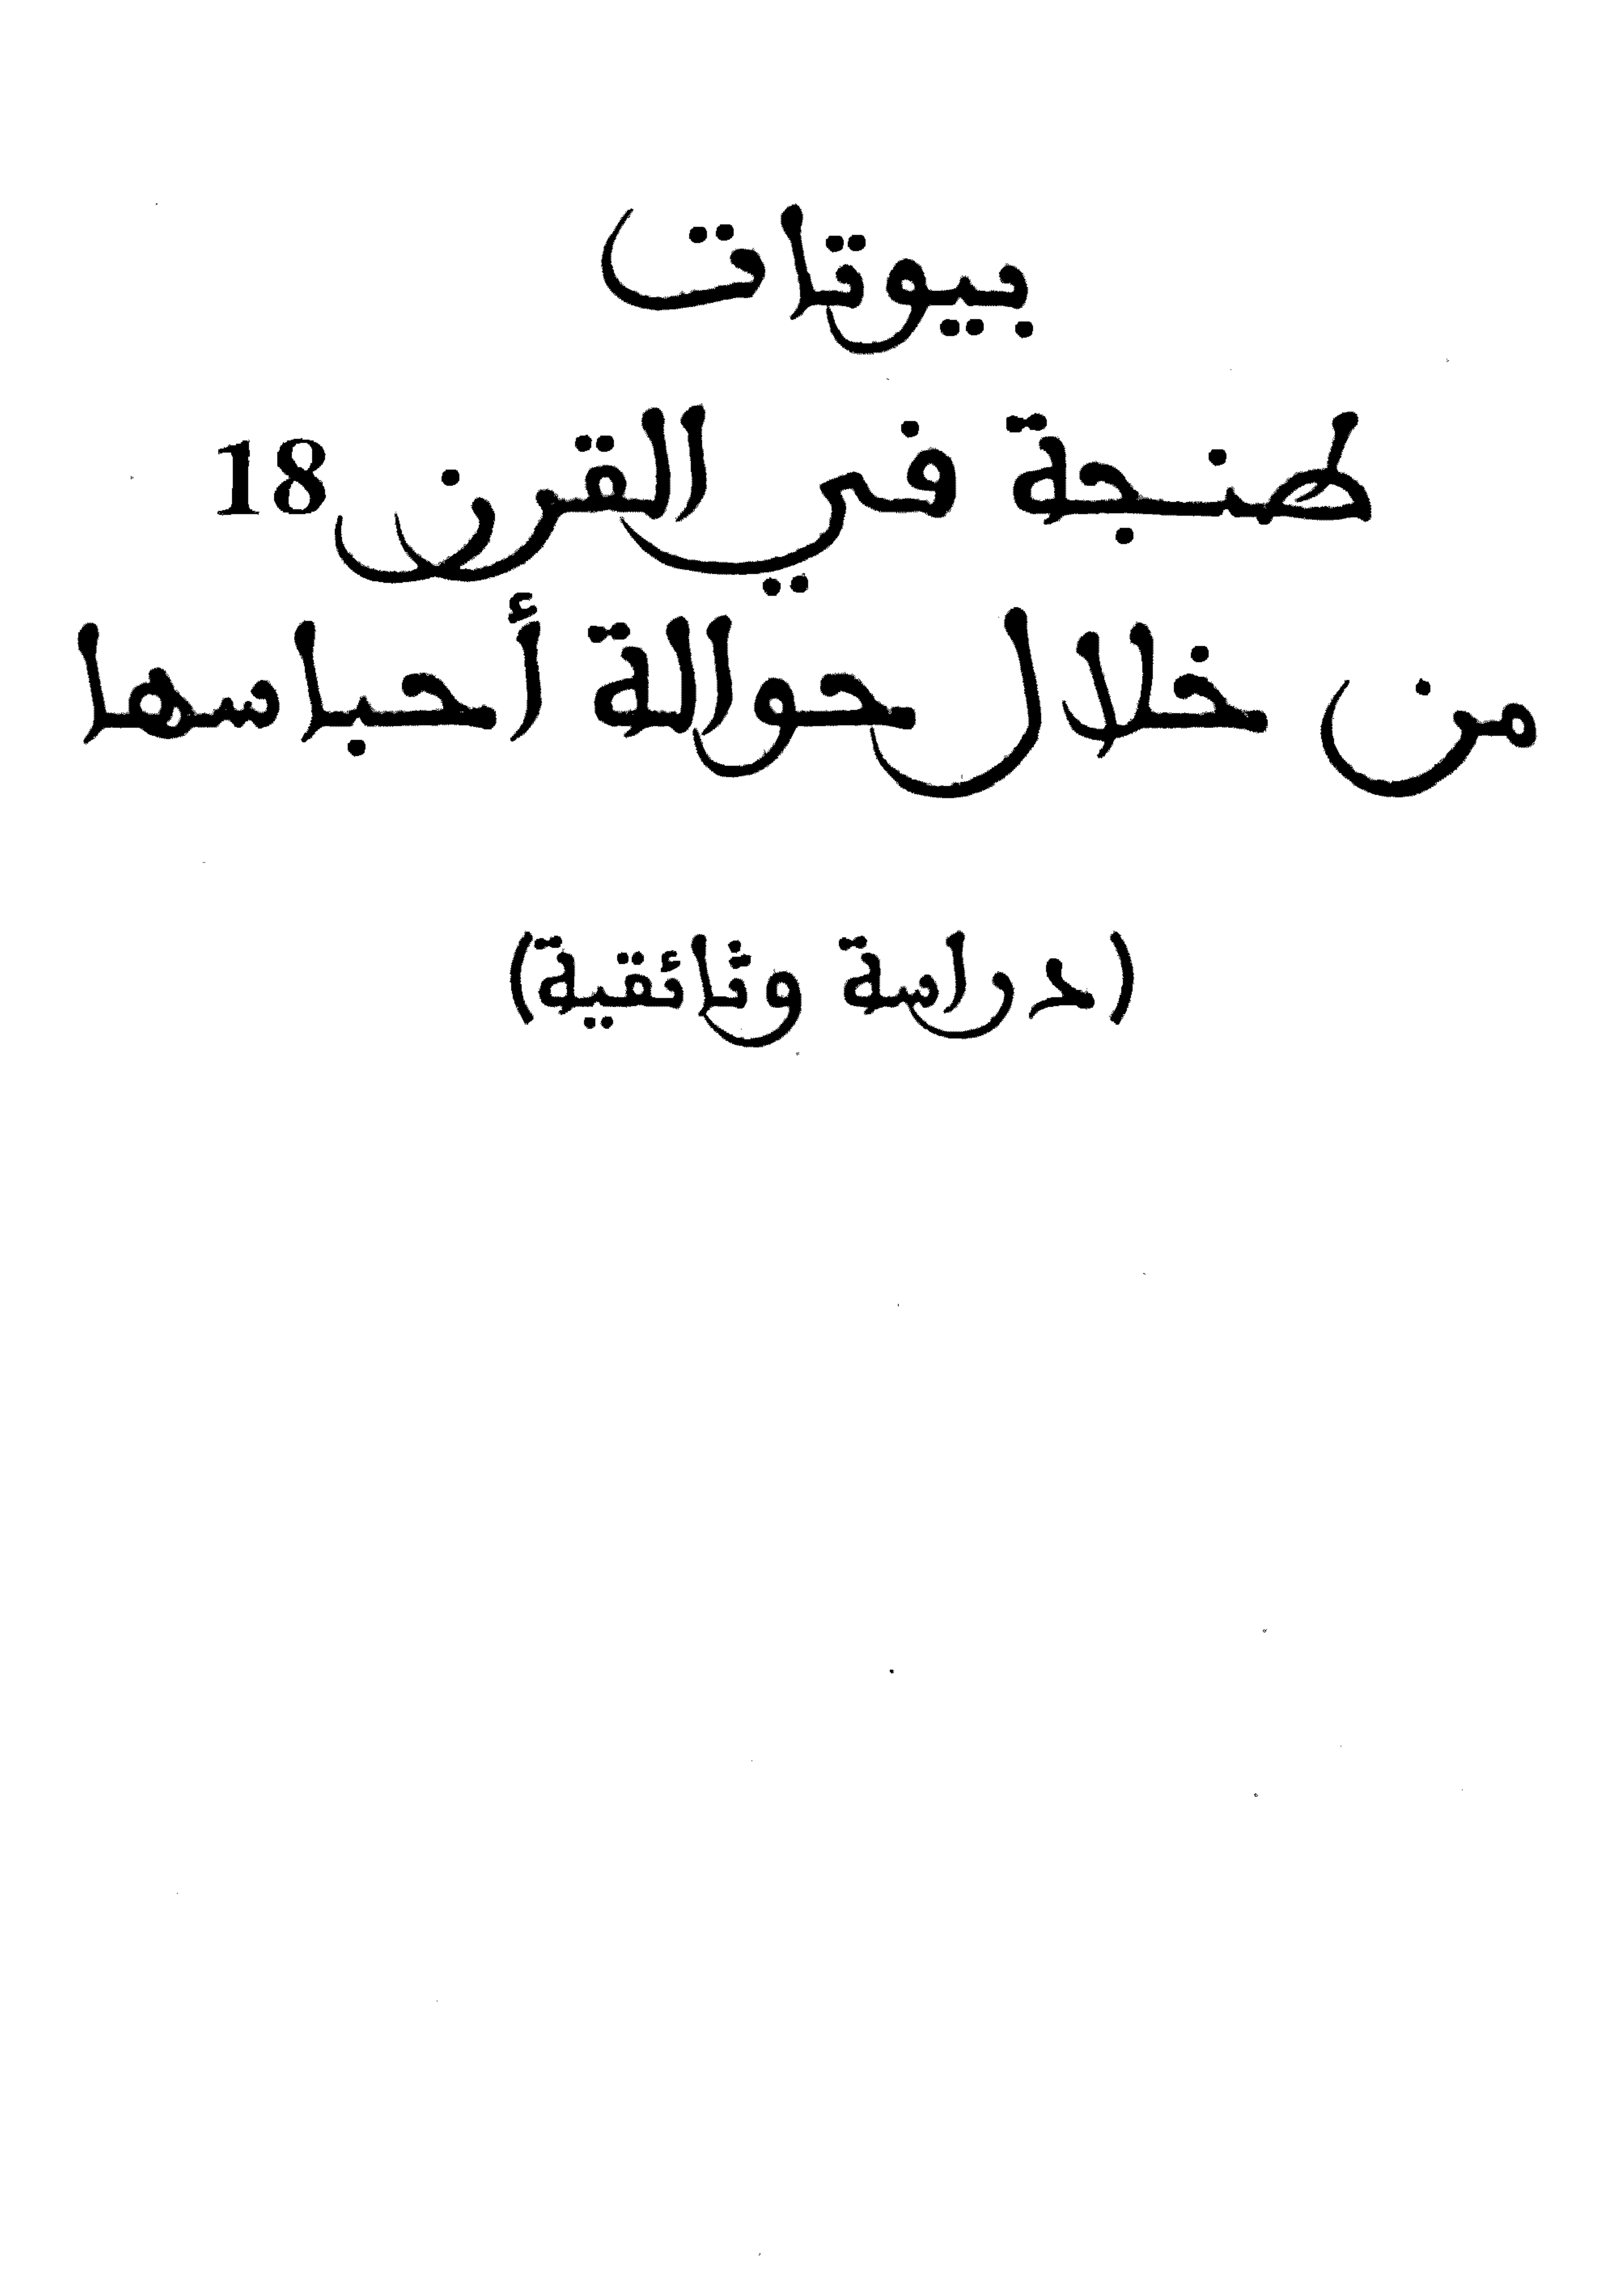 بيوتات
طنجة في القرن 18
من خلال حوالة أحباسها
(دراسة وثائقية)